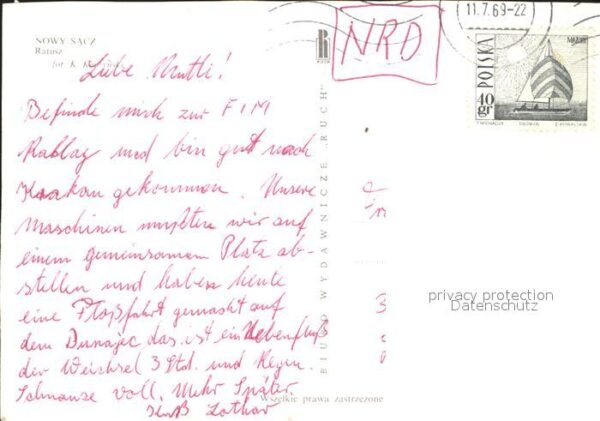 NOWY SĄCZ
Ratusz
fot. K.
Liebe Mutti!
Befinde mich zur FIM
Rallay und bin gut nach
Krakau gekommen. Unsere
Maschinen mußten wir auf
einem gemeinsamen Platz ab-
stellen und haben heute
eine Floßfahrt gemacht auf
dem Dunajec das ist ein Nebenfluß
der Weichsel 3 Std. und Regen.
Schnauze voll. Mehr Später.
Kuß Lothar
BIURO WYDAWNICZE „RUCH”
Wszelkie prawa zastrzeżone
R
RUCH
NRD
11.7.69-22
POLSKA
40 gr
privacy protection
Datenschutz